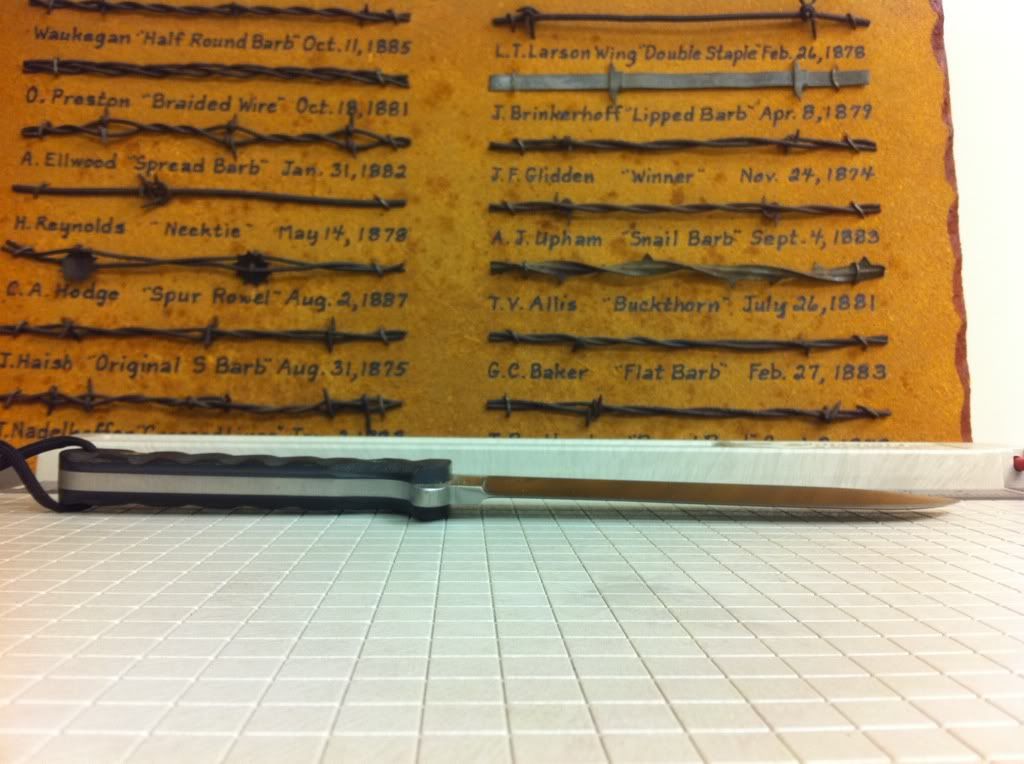 Waukegan "Half Round Barb" Oct. 11, 1885
O. Preston "Braided Wire" Oct. 18, 1881
A. Ellwood "Spread Barb" Jan. 31, 1882
H. Reynolds "Necktie" May 14, 1878
C. A. Hodge "Spur Rowel" Aug. 2, 1887
J. Haish "Original S Barb" Aug. 31, 1875
L. T. Larson Wing "Double Staple" Feb. 26, 1878
J. Brinkerhoff "Lipped Barb" Apr. 8, 1879
J. F. Glidden "Winner" Nov. 24, 1874
A. J. Upham "Snail Barb" Sept. 4, 1883
T. V. Allis "Buckthorn" July 26, 1881
G. C. Baker "Flat Barb" Feb. 27, 1883